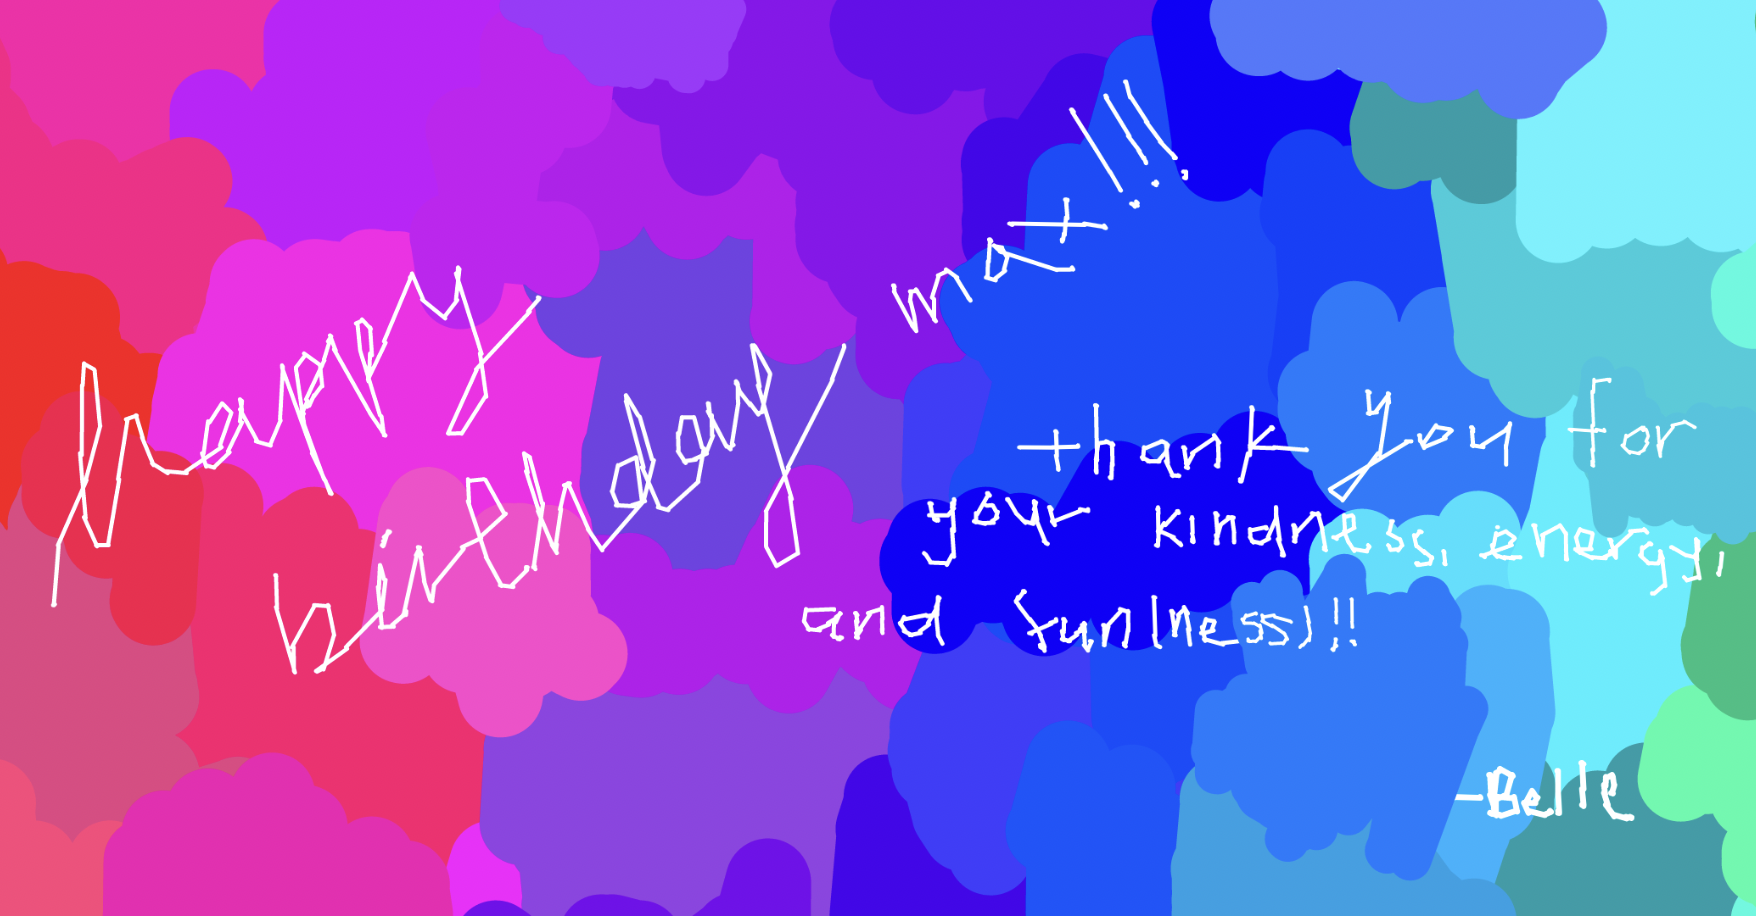 happy
birthday
mat!!!
thank you for
your kindness, energy,
and fun(ness)!!
-Belle